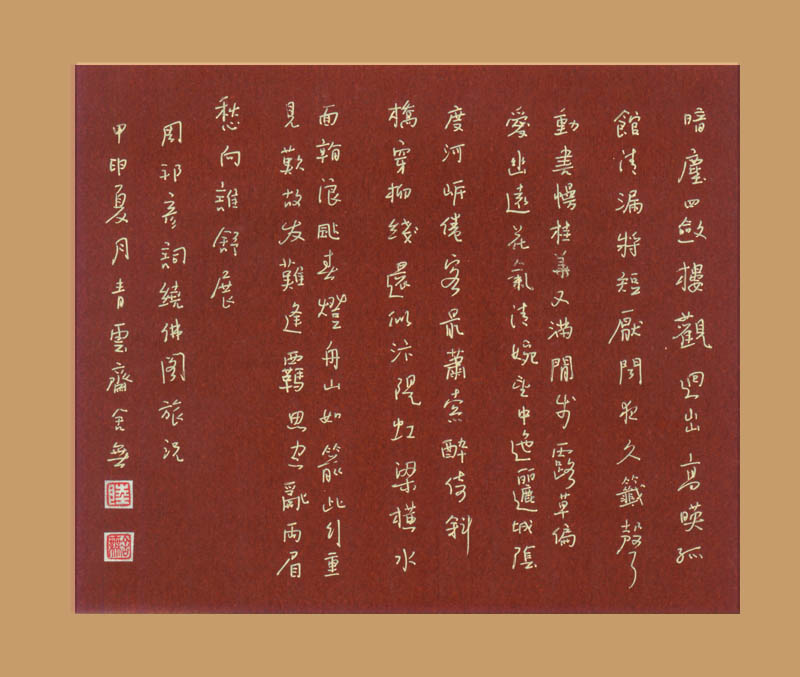 暗塵四斂樓觀迥出高暎孤
館清漏將短厭聞夜久籤聲
動書幔桂華又滿閒步露草偏
愛幽遠花氣清婉望中迤邐城陰
度河岸倦客最蕭索醉倚斜
橋穿柳綫還似汴隄虹梁橫水
面看浪颭春燈舟下如箭此行重
見歎故友難逢羈思空亂兩眉
愁向誰舒展
周邦彥詞繞佛閣旅況
甲申夏月青雲齋